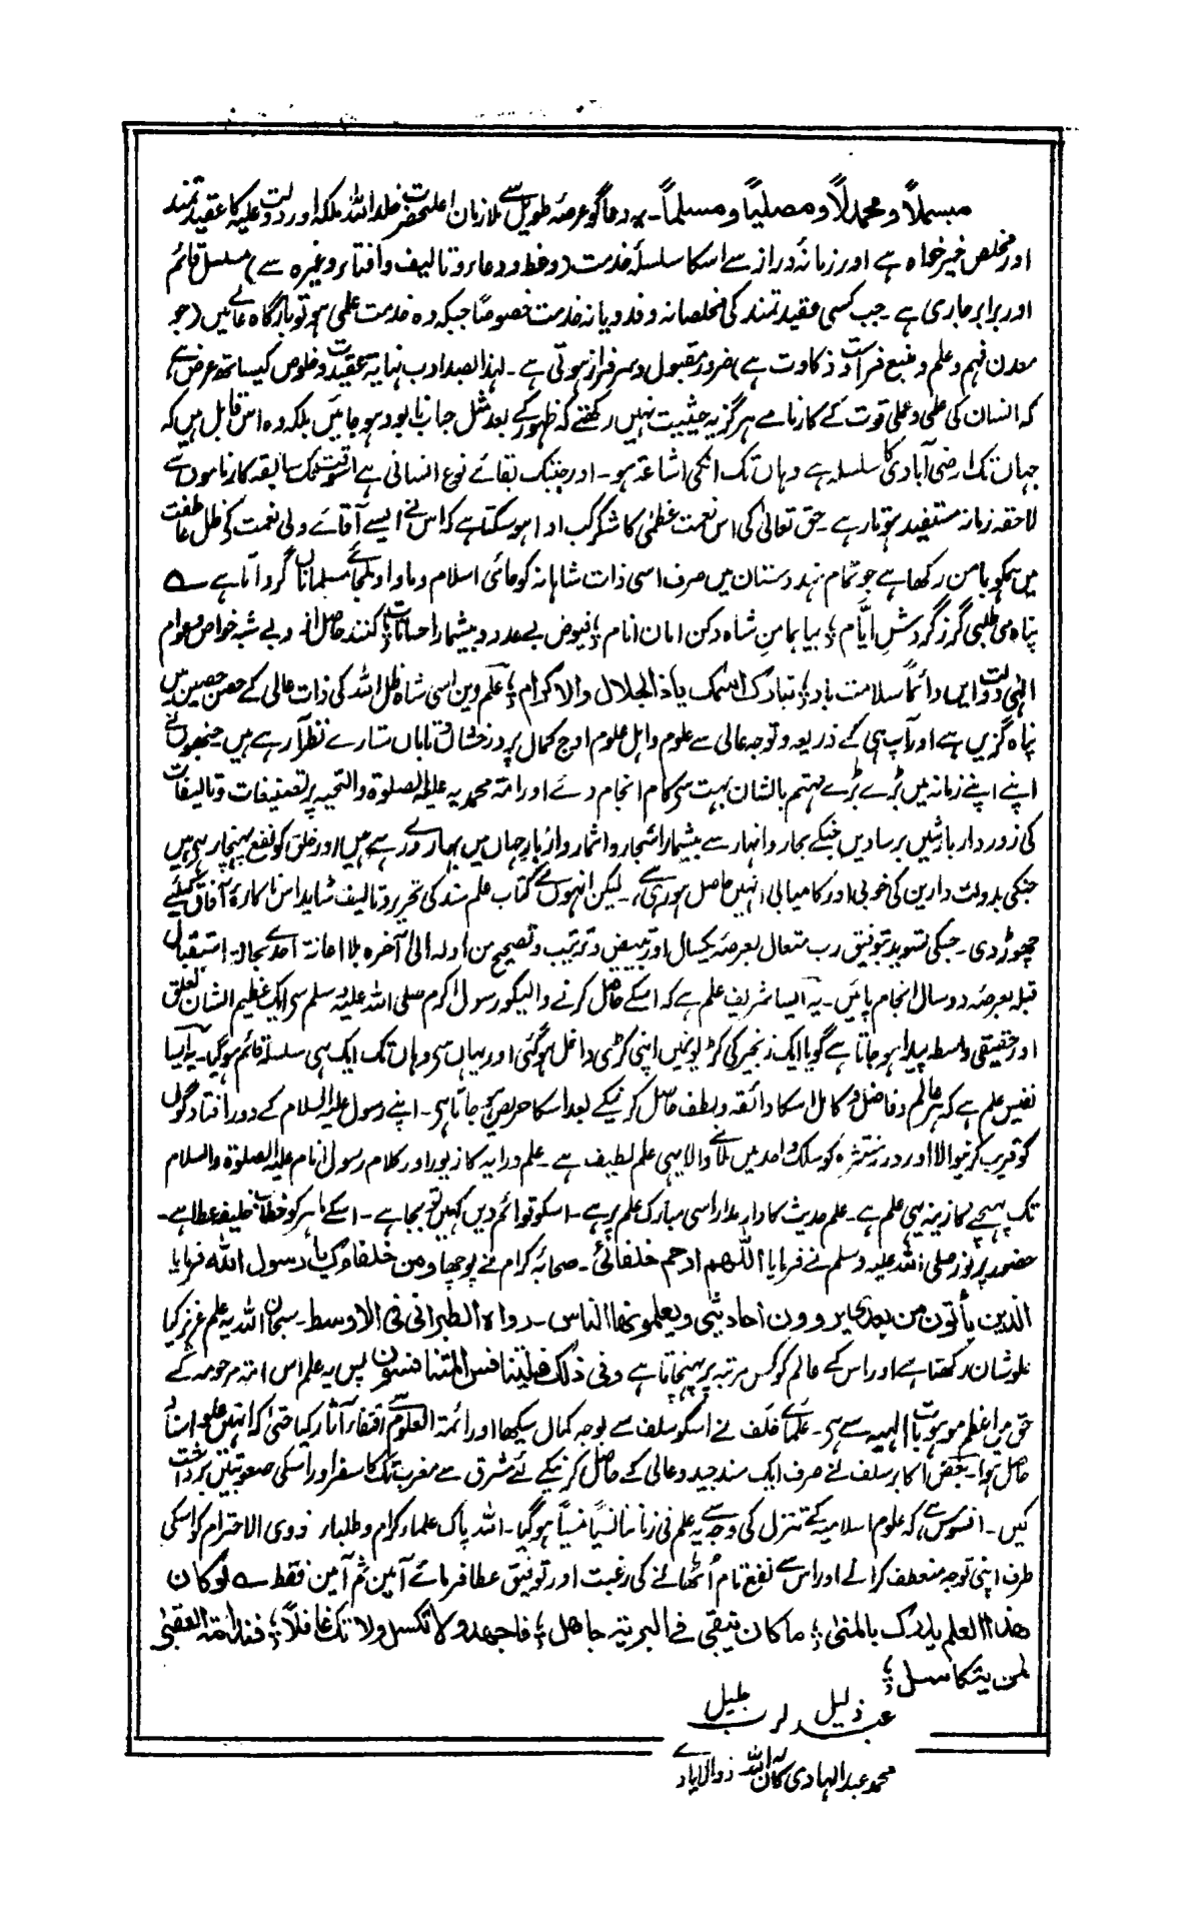 مبسملاً و محمدلاً و مصلیاً و مسلماً۔ یہ دعاگو عرصہ طویل سے ملازمان اعلیحضرت خلد اللہ ملکہ اور دولت علیہ کا عقیدتمند
اور مخلص خیر خواہ ہے اور زمانۂ دراز سے اسکا سلسلۂ خدمت (وعظ و دعا و تالیف و افتاء وغیرہ سے) مسلسل قائم
اور برابر جاری ہے۔ جب کسی عقیدتمند کی مخلصانہ و فدویانہ خدمت خصوصاً جبکہ وہ خدمت علمی ہو تو بارگاہ عالی میں (جو
معدن فہم و علم و منبع فراست و ذکاوت ہے) ضرور مقبول و سرفراز ہوتی ہے۔ لہذا بصد ادب نہایت عقیدت و خلوص کیساتھ عرض ہے
کہ انسان کی علمی و عملی قوت کے کارنامے ہرگز یہ حیثیت نہیں رکھتے کہ ظہور کے بعد مثل حباب نابود ہو جائیں بلکہ وہ اس قابل ہیں کہ
جہاں تک ارضی آبادی کا سلسلہ ہے وہاں تک انکی اشاعت ہو۔ اور جبتک بقائے نوع انسانی ہے اسوقت تک سابقہ کارناموں سے
لاحقہ زمانہ مستفید ہوتا رہے حق تعالیٰ کی اس نعمت عظمیٰ کا شکر کب ادا ہو سکتا ہے کہ اس نے ایسے آقائے ولی نعمت کی ظل عاطفت
میں ہمکو بامن رکھا ہے جو تمام ہندوستان میں صرف اسی ذات شاہانہ کو حامئی اسلام و ماوا و ملجائے مسلماناں گردانا ہے ؎
پناہ می طلبی گر ز گردشِ ایّام ؛ بیا بمامنِ شاہ دکن امان انام ؛ فیوض بے عدد و بیشمار احسانات ؛ کنند حاصل ازو بے شبہ خواص و عوام
الٰہی دولت ایں دائماً سلامت باد ؛ تبارک اسمک یا ذا الجلال والاکرام ؛ علم دین اسی شاہ ظل اللہ کی ذات عالی کے حصن حصین میں
پناہ گزیں ہے اور آپ ہی کے ذریعہ و توجہ عالی سے علوم و اہل علوم اوج کمال پر درخشاں و تاباں ستارے نظر آ رہے ہیں جنھوں نے
اپنے اپنے زمانہ میں بڑے بڑے مہتم بالشان بہت سے کام انجام دئے اور امۃ محمدیہ علیہ الصلوۃ والتحیہ پر تصنیفات و تالیفات
کی زوردار بارشیں برسا دیں جنکے بحار و انہار سے بیشمار اشجار و اثمار و ازہار جہاں میں بہار دے رہے ہیں اور خلق کو نفع پہنچا رہی ہیں
جنکی بدولت دارین کی خوبی اور کامیابی انہیں حاصل ہو رہی ہے، لیکن انہوں نے کتاب علم سند کی تحریر و تالیف شاید اس ناکارۂ آفاق کیلئے
چھوڑ دی۔ جسکی تسوید بتوفیق رب متعال بعرصۂ یکسال اور تبییض و ترتیب و تصحیح من اولہ الی آخرہ بلا اعانۃ احدے بحالت استقبال
قبلہ بعرصہ دو سال انجام پائیں۔ یہ ایسا شریف علم ہے کہ اسکے حاصل کرنے والیکو رسول اکرم صلی اللہ علیہ وسلم سے ایک عظیم الشان تعلق
اور حقیقی واسطہ پیدا ہو جاتا ہے گویا ایک زنجیر کی کڑیوں میں اپنی کڑی داخل ہو گئی اور یہاں سے وہاں تک ایک ہی سلسلہ قائم ہو گیا۔ یہ ایسا
نفیس علم ہے کہ ہر عالم و فاضل و کامل اسکا ذائقہ و لطف حاصل کرنیکے بعد اسکا حریص ہو جاتا ہے۔ اپنے رسول علیہ السلام کے دور افتادگوں
کو قریب کرنیوالا اور درر منتثرہ کو سلک واحد میں لانے والا یہی علم لطیف ہے۔ علم درایہ کا زیور اور کلام رسول انام علیہ الصلوۃ والسلام
تک پہنچنے کا زینہ یہی علم ہے۔ علم حدیث کا دار مدار اسی مبارک علم پر ہے۔ اسکو توائم دیں کہیں تو بجا ہے۔ اسکے ماہر کو خطاب خلیفہ عطا ہے۔
حضور پر نور صلی اللہ علیہ وسلم نے فرمایا اللھم ارحم خلفائی۔ صحابہ کرام نے پوچھا ومن خلفاؤک یا رسول اللہ فرمایا
الذین یأتون من بعدی یروون احادیثی ویعلمونھا الناس۔ رواہ الطبرانی فی الاوسط۔ سبحان اللہ یہ علم عزیز کیا
علو شان رکھتا ہے اور اس کے عالم کو کس مرتبہ پر پہنچاتا ہے وفی ذلک فلیتنافس المتنافسون پس یہ علم اس امۃ مرحومہ کے
حق میں اعظم موہوبات الٰہیہ سے ہے۔ علمائے خلف نے اسکو سلف سے بوجہ کمال سیکھا اور ائمۃ العلوم سے اقتفاء آثار کیا حتی کہ انہیں علو اسناد
حاصل ہوا۔ بعض اکابر سلف نے صرف ایک سند جید و عالی کے حاصل کرنیکے لئے مشرق سے مغرب تک کا سفر اور اسکی صعوبتیں برداشت
کیں۔ افسوس ہے کہ علوم اسلامیہ کے تنزل کی وجہ سے یہ علم فی زماننا نسیاً منسیاً ہو گیا۔ اللہ پاک علماء کرام و طلباء ذوی الاحترام کو اسکی
طرف اپنی توجہ منعطف کرانے اور اس سے نفع تام اُٹھانے کی رغبت اور توفیق عطا فرمائے آمین ثم آمین فقط ؎ لو کان
ھذا العلم یدرک بالمنیٰ ؛ ما کان یبقی فی البریۃ جاھل ؛ فاجھد ولا تکسل ولا تک غافلاً ؛ فندامۃ العقبیٰ
لمن یتکاسل ؛
عبد ذلیل لرب جلیل
محمد عبد الہادی کان اللہ لہ